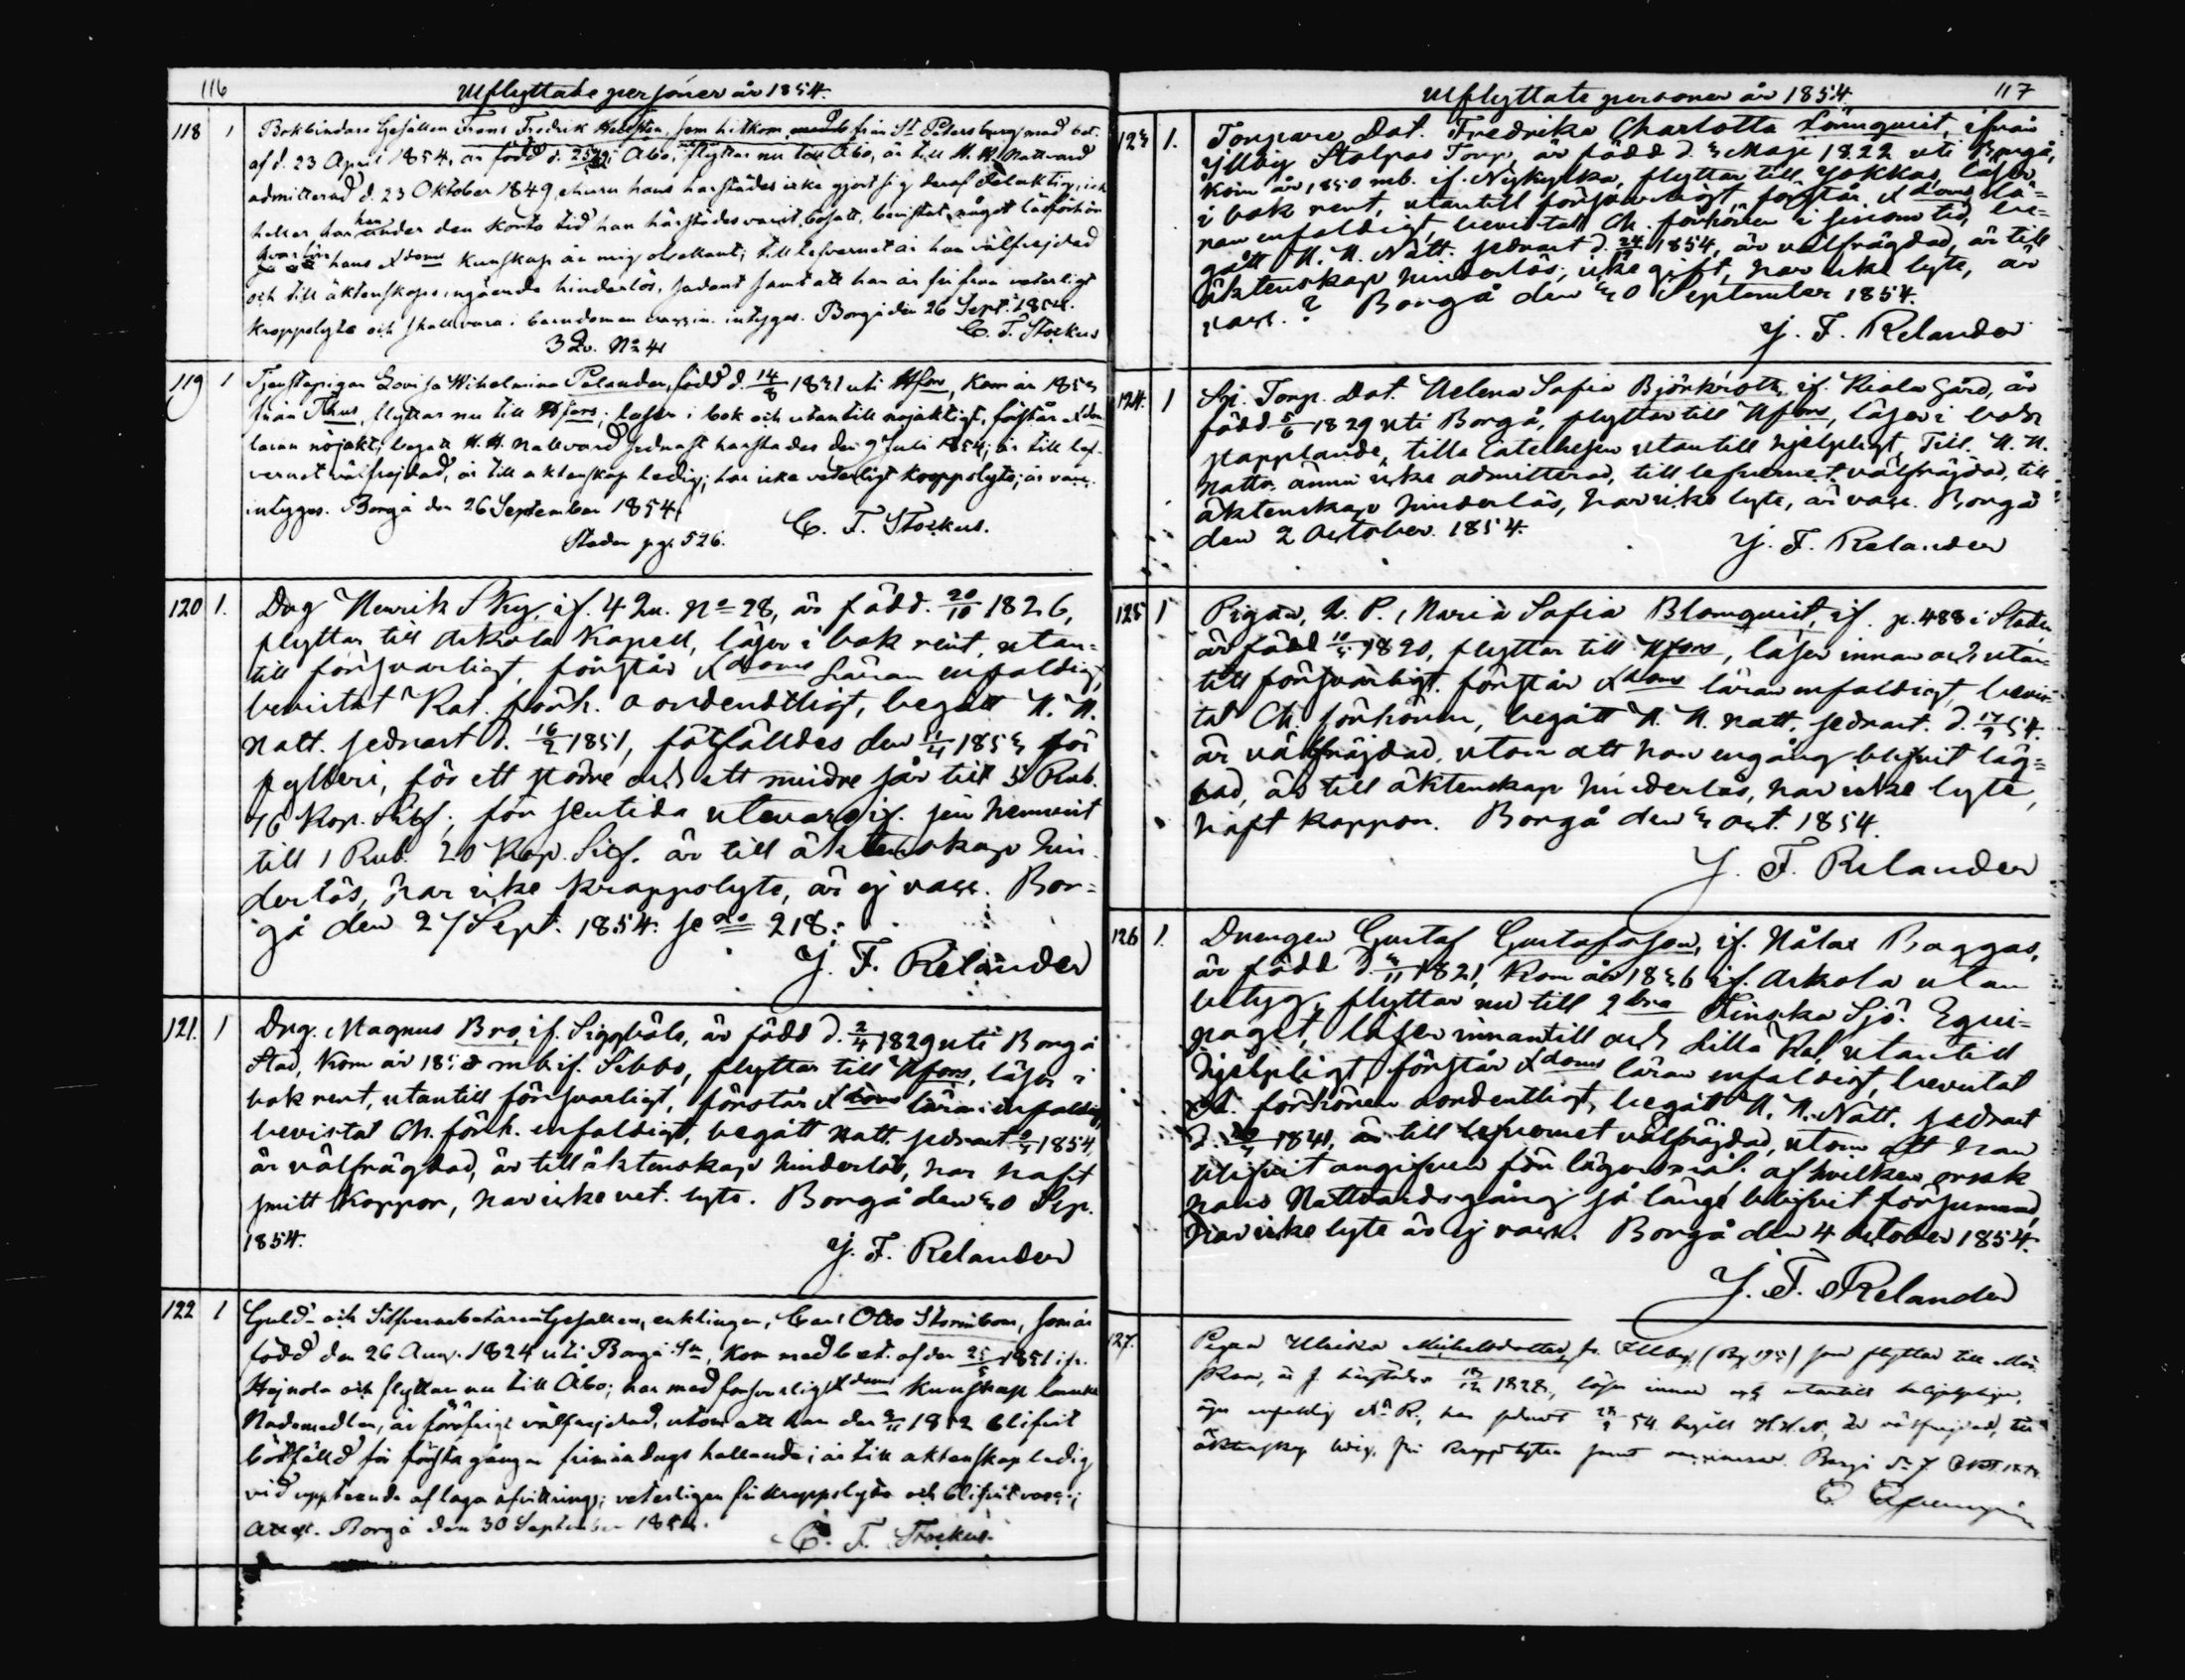 116
Utflyttade personer år 1854.
118 1 Bokbindare Gesällen Frans Fredrik Hellsten, som hitkom från St Petersburg med bet.
af d. 23 April 1854, är född d. i Åbo, flyttar nu till Åbo, är till H. H. Nattvard
admitterad d. 23 Oktober 1849, ehuru hans härstädes icke gjort sig deraf delaktig, icke
heller har han under den korta tid han härstädes varit bosatt, bevistat något läsförhör
hvarför hans Xdoms kunskap är mig obekant; till lefvernet är han välfrejdad
och till äktenskaps ingående hinderlös, sadant samt att han är fri från veterligt
kroppslyte och skall vara i barndomen vaccin. intygas. Borgå den 26 Sept. 1854.
3 Qv. No 41 C. F. Stockus
119 1 Tjenstepigan Lovisa Wilhelmina Polander, född d. 14/8 1831 uti Hfors, kom år 1853
från Thus, flyttar nu till Hfors; läser i bok och utantill nöjaktigt, förstår Xdoms
läran nöjakt; begått H. H. Nattvard sednast härstädes den 9 Juli 1854; är till lef-
vernet välfrejdad, är till äktenskap ledig; har icke veterligt kroppslyte; är vacc.
intygas. Borgå den 26 September 1854.
Staden pg. 526. C. F. Stockus.
120 1. Drg Henrik Sky, if. 4 Qu. No 28, är född 20/10 1826,
flyttar till Askola Kapell, läser i bok rent, utan-
till försvarligt, förstår Xdoms Läran enfaldigt,
bevistat Kat. förh. oordendtligt, begått H. H.
Natt. sednast d. 16/2 1851, fötfälldes den 11/4 1853 för
fylleri, för ett större och ett mindre sår till 5 Rub.
76 Kop. Silf; för sentida utevaro if. sin hemvist
till 1 Rub. 20 Kop. Silf. är till äktenskap hin-
derlös, har icke kroppslyte, är ej vacc. Bor=
gå den 27 Sept. 1854. se No 218.
J. F. Relander
121. 1 Drg. Magnus Bro, if. Siggböle, är född d. 2/4 1829 uti Borgå
Stad, kom år m b if. Sibbo, flyttar till Hfors, läser i
bok rent, utantill försvarligt, förstår Xdoms läran enfaldigt,
bevistat Ch. förh. enfaldigt, begått Natt. sednast 1854,
är välfrägdad, är till äktenskap hinderlös, har haft
smitt koppor, har icke vet. lyte. Borgå den 30 Sep.
1854. J. F. Relander
122 1 Guld- och Silfverarbetare Gesällen, enklingen, Carl Otto Strömbom, som är
född den 26 Aug. 1824 uti Borgå Sn, kom med bet. af den 25/5 1851 ifr.
Hejnola och flyttar nu till Åbo; har med försvarligt Xdoms kunskap
Nademedlen, är föröfrigt välfrejdad, utom att han den 1852 blifvit
bötfälld för första gången frimåndags hallande; är till äktenskap ledig
vid uppteende af laga afvittring; veterligen fri kroppslyte och blifvit vacc;
attest. Borgå den 30 September 1854. C. F. Stockus.
Utflyttate personer år 1854. 117
123 1. Torpare Dot. Fredrika Charlotta Lönnquist, ifrån
Illby Stolpas Torp, är född d. 3 Maji 1822 uti Borgå,
kom år 1850 mb. if. Nykyrka, flyttar till Jokkas, läser
i bok rent, utantill försvarligt, förstår Xdoms lä=
ran enfaldigt, bevistat Ch. förhören i sinom tid, be=
gått H. H. Natt. sednast d. 24/9 1854, är välfrägdad, är till
äktenskap hinderlös, icke gift, har icke lyte, är
vacc. ? Borgå den 30 September 1854.
J. F. Relander
124. 1 Torp. Dot. Helena Sofia Björkroth, if. Kiala Gård, är
född 5/6 1829 uti Borgå, flyttar till Hfors, läser i bok
stapplande, lilla Catechesen utantill hjelpligt, till H. H.
Nattv. ännu icke admitterad, till lefvernet välfräjdad, till
äktenskap hinderlös, har icke lyte, är vacc. Borgå
den 2 October 1854. J. F. Relander
125 1 Pigan, Maria Sofia Blomquist, if. p. 488 i Staden
är född 1820, flyttar till Hfors, läser innan och utan-
till försvarligt, förstår Xdoms läran enfaldigt, bevis-
tat Ch. förhören, begått H. H. Natt. sednast d. 17/9 54.
är välfräjdad, utom att hon engång blifvit läg=
rad, är till äktenskap hinderlös, har icke lyte,
haft koppor. Borgå den 3 Oct. 1854.
J. F. Relander
126 1. Drengen Gustaf Gustafsson, if. Nålax Baggas,
är född d. 3/11 1821, kom år 1836 if. Askola utan
betyg, flyttar nu till 2dra Finska Sjö Equi=
paget, läser innantill och Lilla Kat. utantill
hjelpligt, förstår Xdoms läran enfaldigt, bevistat
Ch. förhören oordentligt, begått H. H. Natt. sednast
d. 1841, är till lefvernet välfräjdad, utom att han
blifvit angifven för lägersmål, af hvilken orsak
hans Nattvardsgång så länge blifvit försummad,
har icke lyte är ej vacc. Borgå den 4 October 1854.
J. F. Relander
127. Pigan Ulrika Michelsdotter, fr. Illby som flyttar till Män
är f. härstädes 1828, läser innan och utantill
enfaldig har sednast 54 begått H. H. N. är välfrejdad, till
äktenskap ledig, fri kroppslyte samt vaccinerad. Borgå d. 7 Okt. 1854.